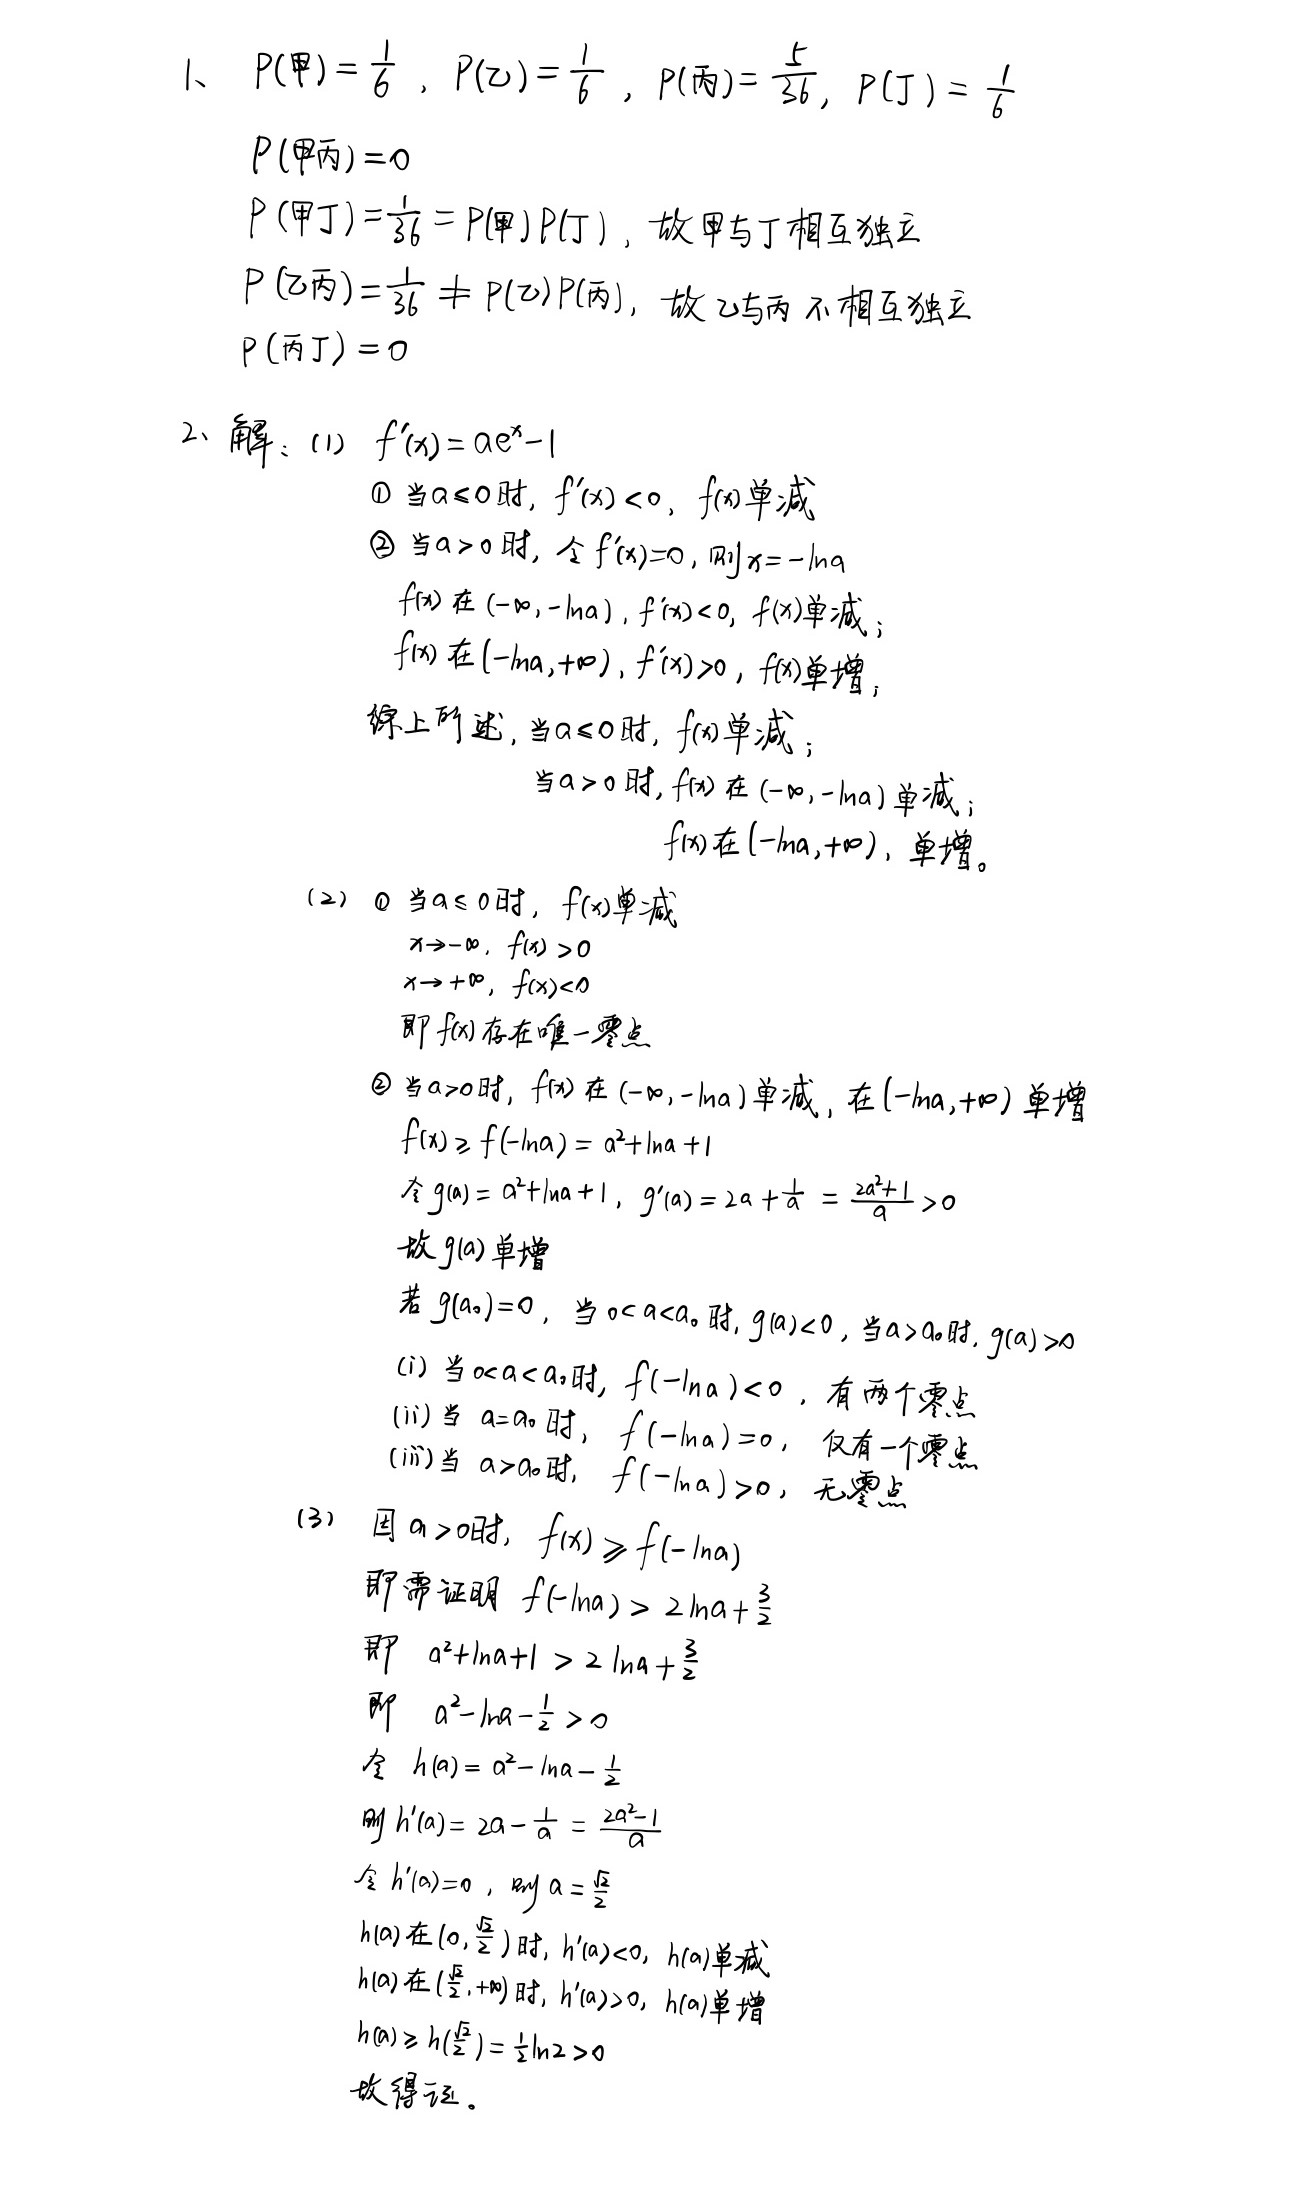 1、 P(甲)=1/6, P(乙)=1/6, P(丙)=5/36, P(丁)=1/6
P(甲丙)=0
P(甲丁)=1/36=P(甲)P(丁), 故甲与丁相互独立
P(乙丙)=1/36≠P(乙)P(丙), 故乙与丙不相互独立
P(丙丁)=0
2、解: (1) f′(x)=ae^x-1
① 当a≤0时, f′(x)<0, f(x)单减
② 当a>0时, 令f′(x)=0, 则x=-lna
f(x)在(-∞,-lna), f′(x)<0, f(x)单减;
f(x)在(-lna,+∞), f′(x)>0, f(x)单增;
综上所述, 当a≤0时, f(x)单减;
当a>0时, f(x)在(-∞,-lna)单减;
f(x)在(-lna,+∞), 单增。
(2) ① 当a≤0时, f(x)单减
x→-∞, f(x)>0
x→+∞, f(x)<0
即f(x)存在唯一零点
② 当a>0时, f(x)在(-∞,-lna)单减, 在(-lna,+∞)单增
f(x)≥f(-lna)=a²+lna+1
令g(a)=a²+lna+1, g′(a)=2a+1/a=(2a²+1)/a>0
故g(a)单增
若g(a₀)=0, 当0<a<a₀时, g(a)<0, 当a>a₀时, g(a)>0
(i) 当0<a<a₀时, f(-lna)<0, 有两个零点
(ii) 当a=a₀时, f(-lna)=0, 仅有一个零点
(iii) 当a>a₀时, f(-lna)>0, 无零点
(3) 因a>0时, f(x)≥f(-lna)
即需证明 f(-lna)>2lna+3/2
即 a²+lna+1>2lna+3/2
即 a²-lna-1/2>0
令 h(a)=a²-lna-1/2
则h′(a)=2a-1/a=(2a²-1)/a
令h′(a)=0, 则a=√2/2
h(a)在(0,√2/2)时, h′(a)<0, h(a)单减
h(a)在(√2/2,+∞)时, h′(a)>0, h(a)单增
h(a)≥h(√2/2)=1/2ln2>0
故得证。